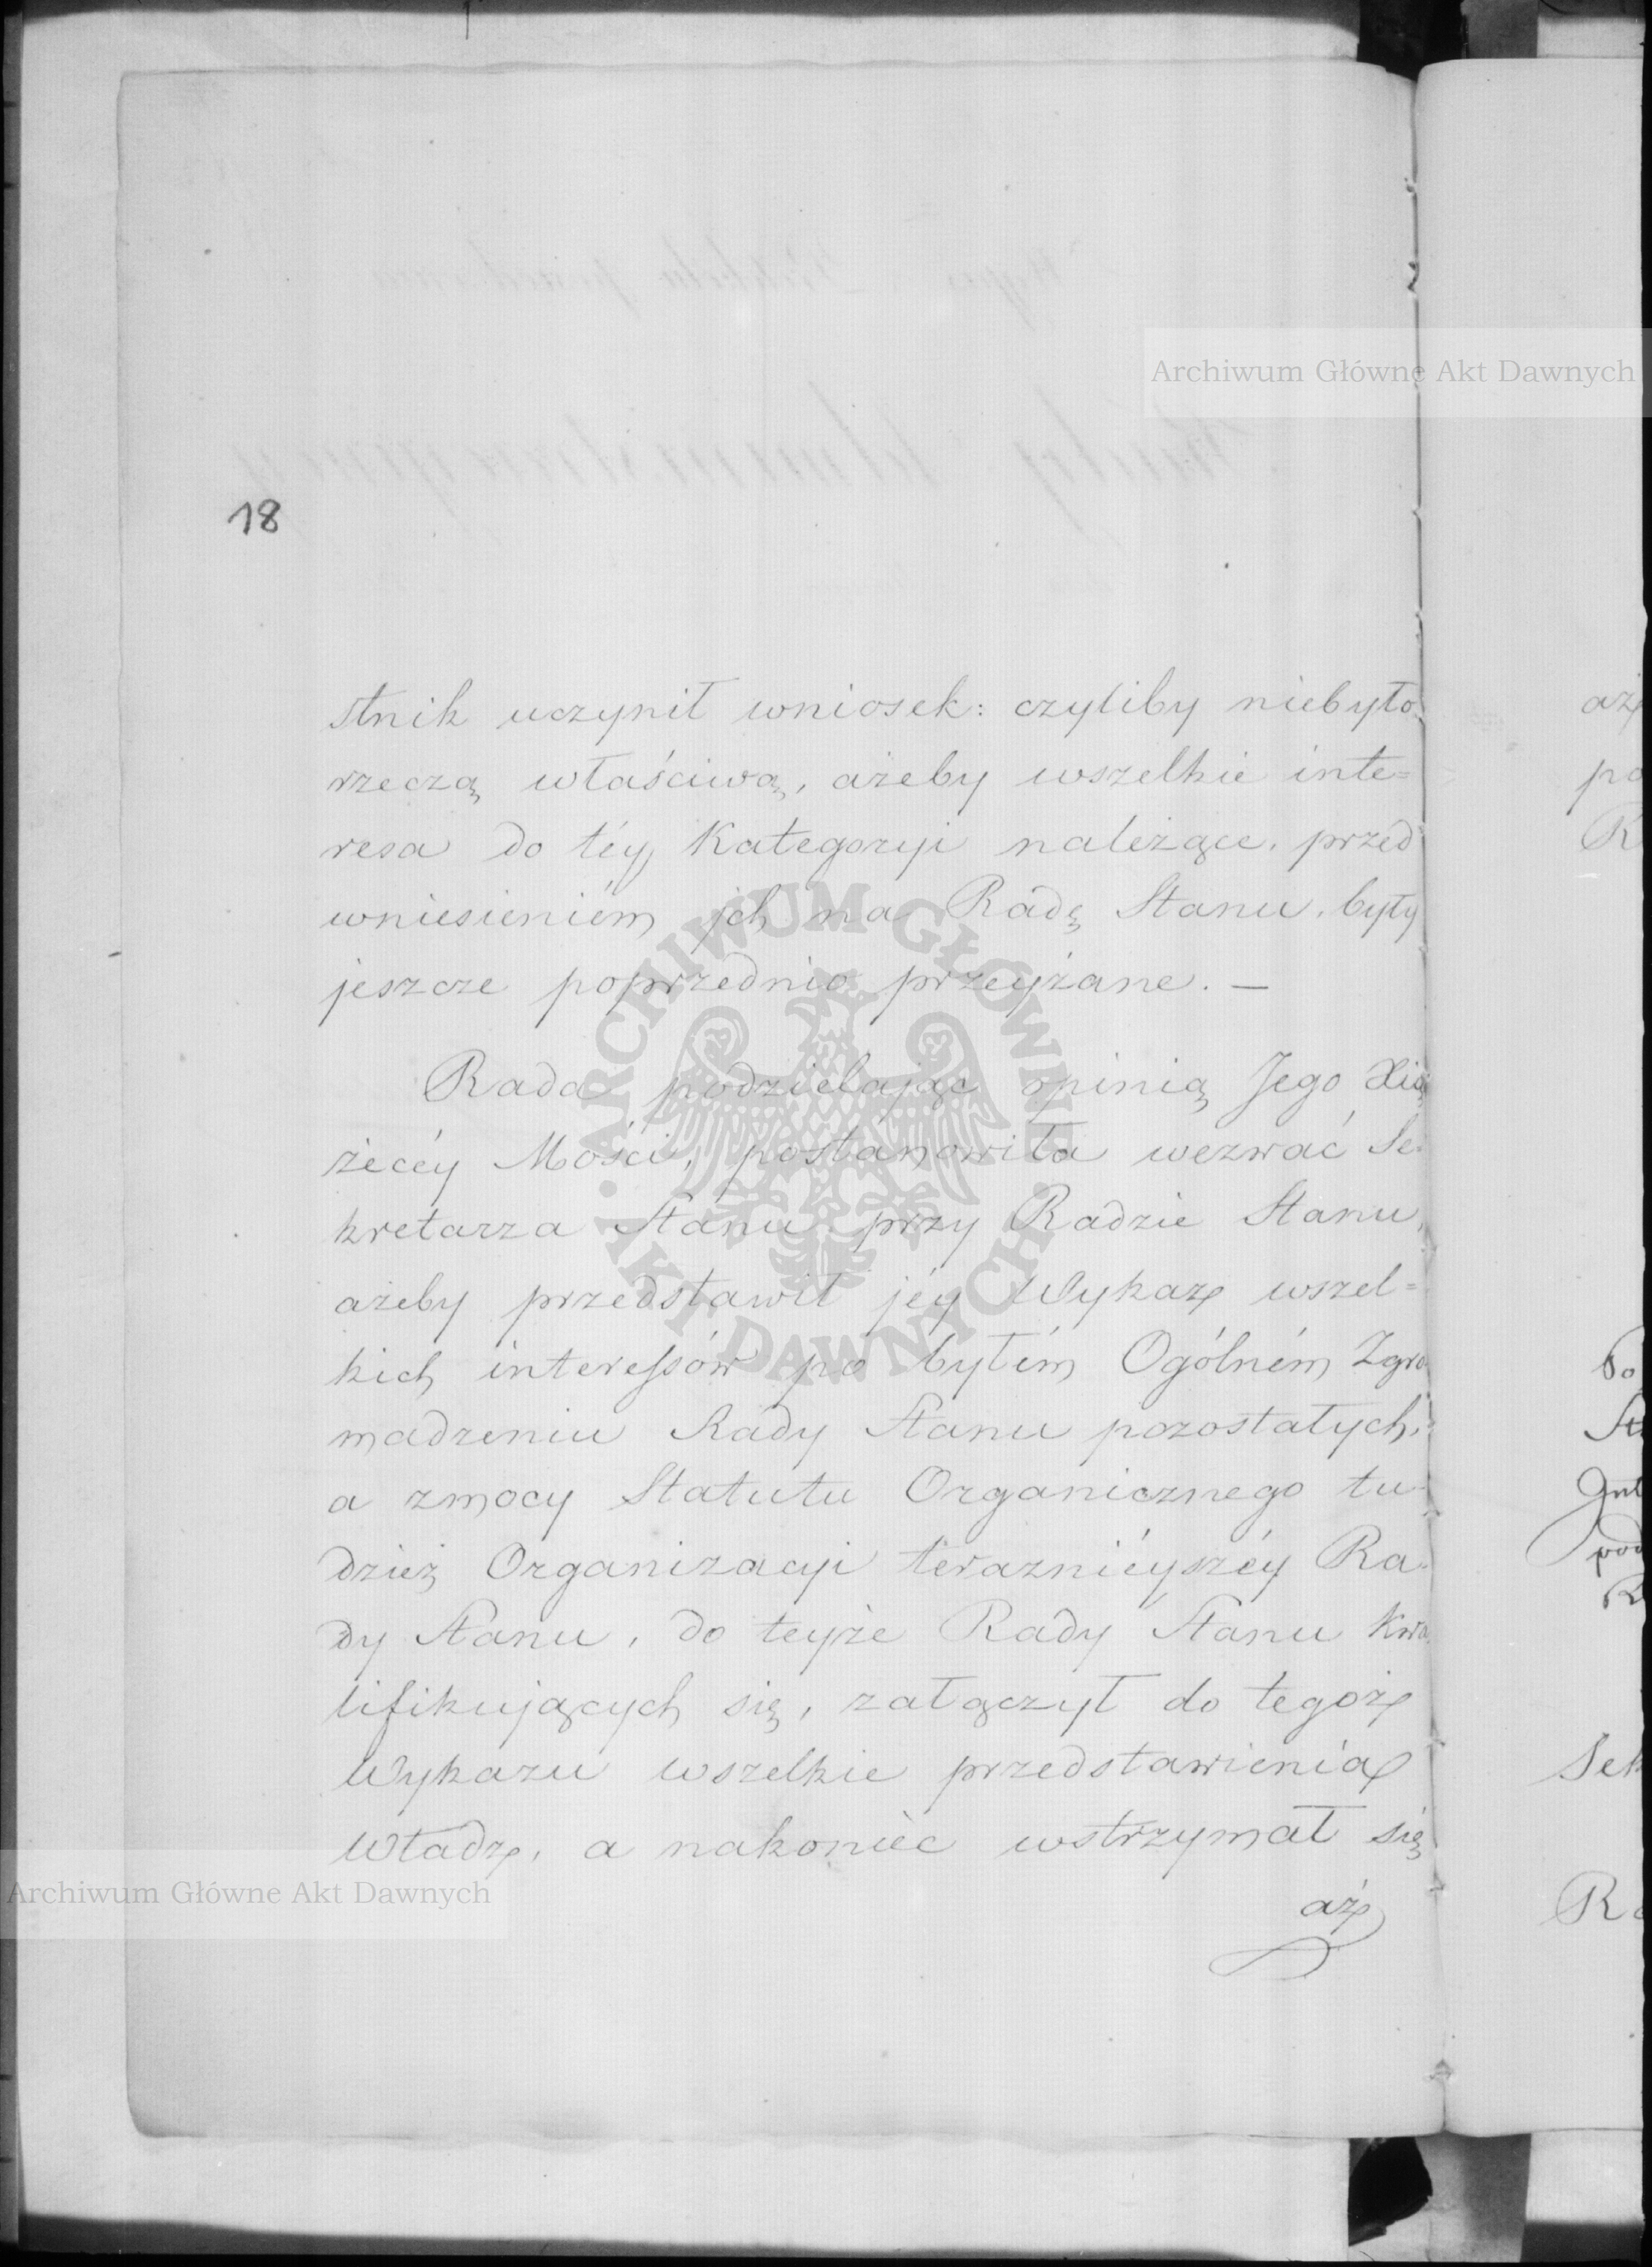 18
stnik uczynił wniosek: czyliby niebyło
rzeczą właściwą, ażeby wszelkie inte=
resa do téy Kategoryi należące, przed
wniesieniém jch na Radę Stanu, były
jeszcze poprzednio przeyżane. —
Rada podzielając opinią Jego Xią
żęcéy Mości, postanowiła wezwać Se-
kretarza Stanu przy Radzie Stanu,
ażeby przedstawił jéy Wykaz wszel=
kich interessów po byłém Ogólném Zgro
madzeniu Rady Stanu pozostałych,
a zmocy Statutu Organicznego tu-
dzież Organizacyi teraznieyszéy Ra-
dy Stanu, do teyże Rady Stanu kwa
lifikujących się, załączył do tegoż
Wykazu wszelkie przedstawienia
Władz, a nakoniec wstrzymał się
aż
aż
po
R
Sek
Archiwum Główne Akt Dawnych
ARCHIWUM GŁÓWNE AKT DAWNYCH
Archiwum Główne Akt Dawnych